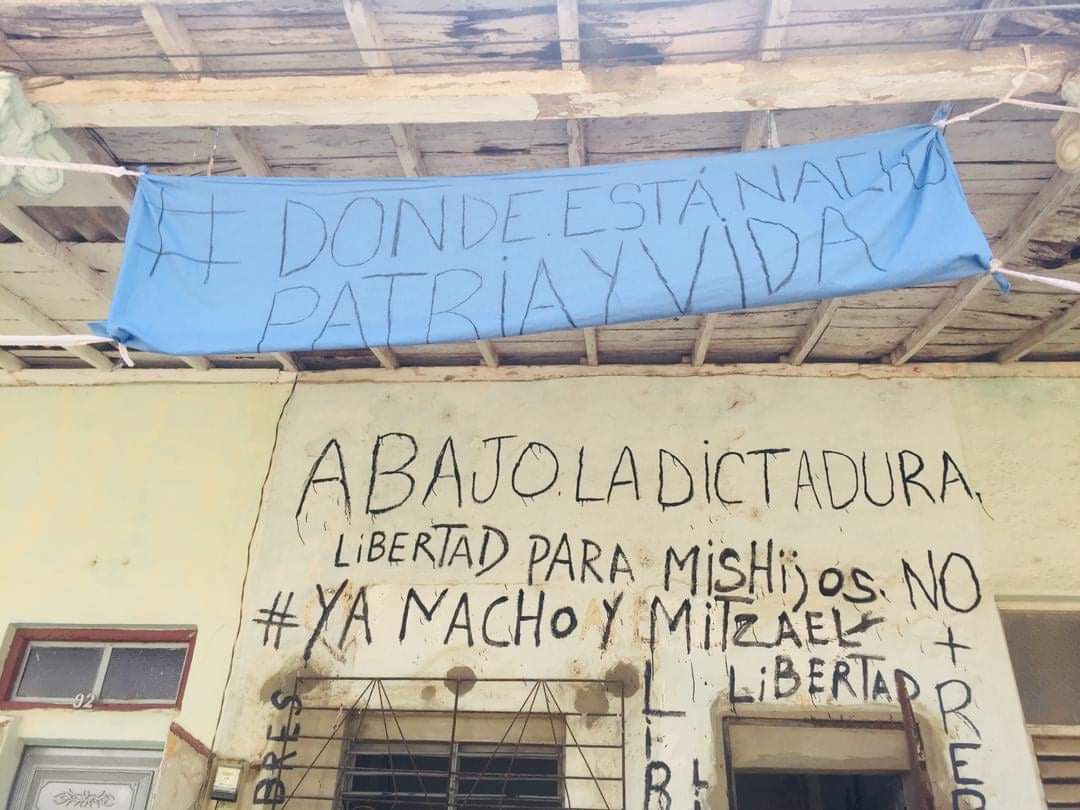 # DONDE.ESTÁ NACHO
PATRIA Y VIDA
ABAJO.LA DICTADURA.
LIBERTAD PARA MIS HIJOS.
#YA NACHO Y MITZAEL
LIBERTAD
NO
+
REP
BRES
LIB
LI
92